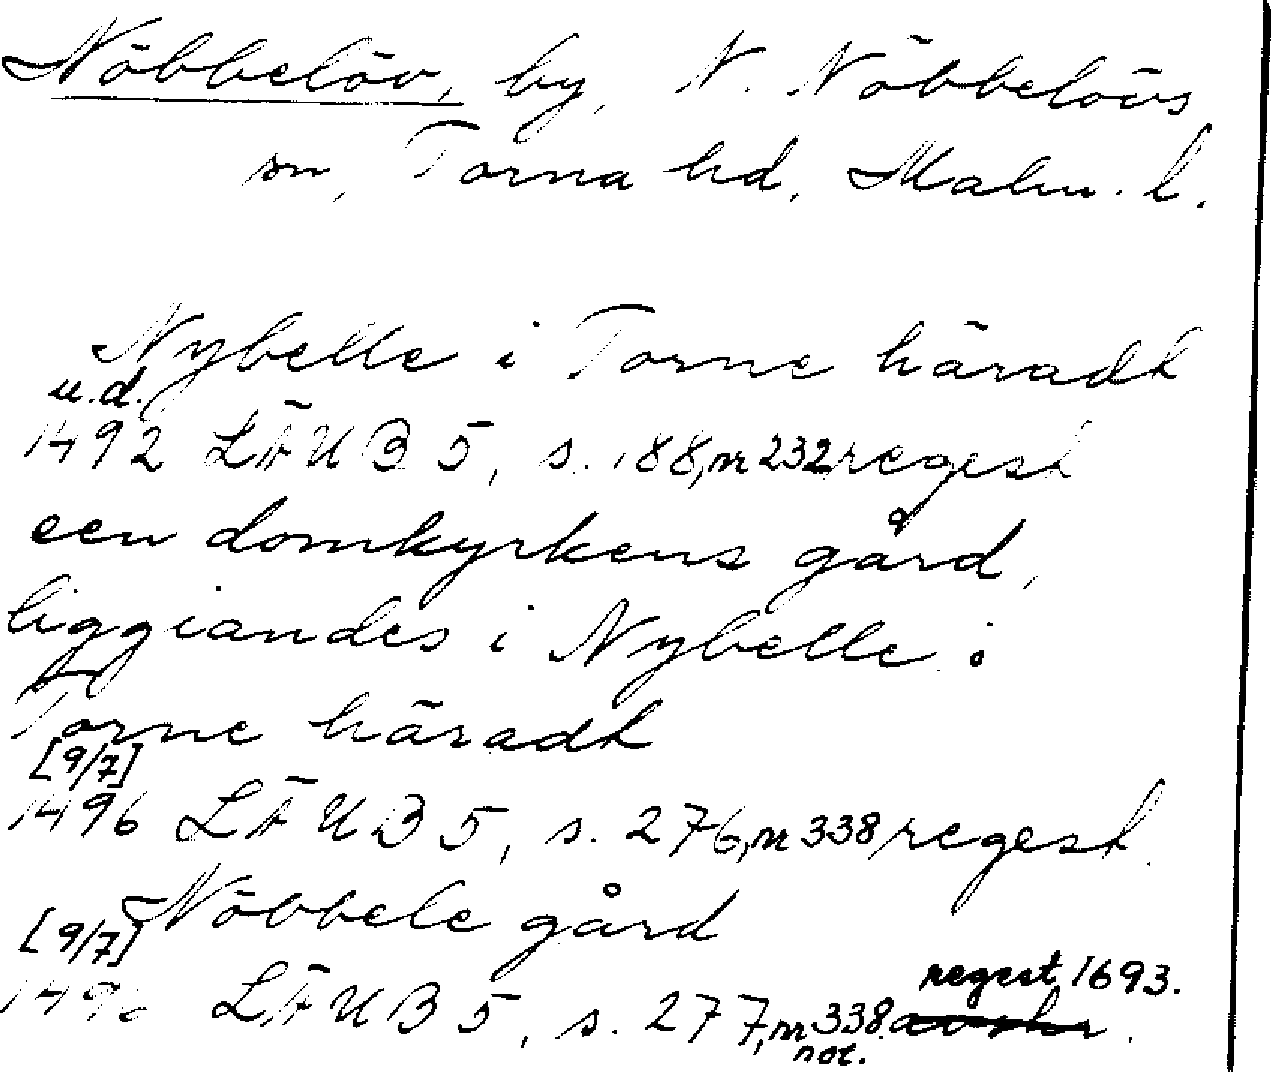 Nöbbelöv, by, N. Nöbbelövs
sn, Torna hd, Malm. l.
Nybelle i Torne häradt
u.d.
1492 LÄUB 5, s. 188, nr 232 regest
een domkyrkens gård,
liggiandes i Nybelle i
Torne häradt
[9/7]
1496 LÄUB 5, s. 276, nr 338 regest.
Nöbbele gård
[9/7]
1496 LÄUB 5, s. 277, nr 338 avskr.
regest 1693.
not.